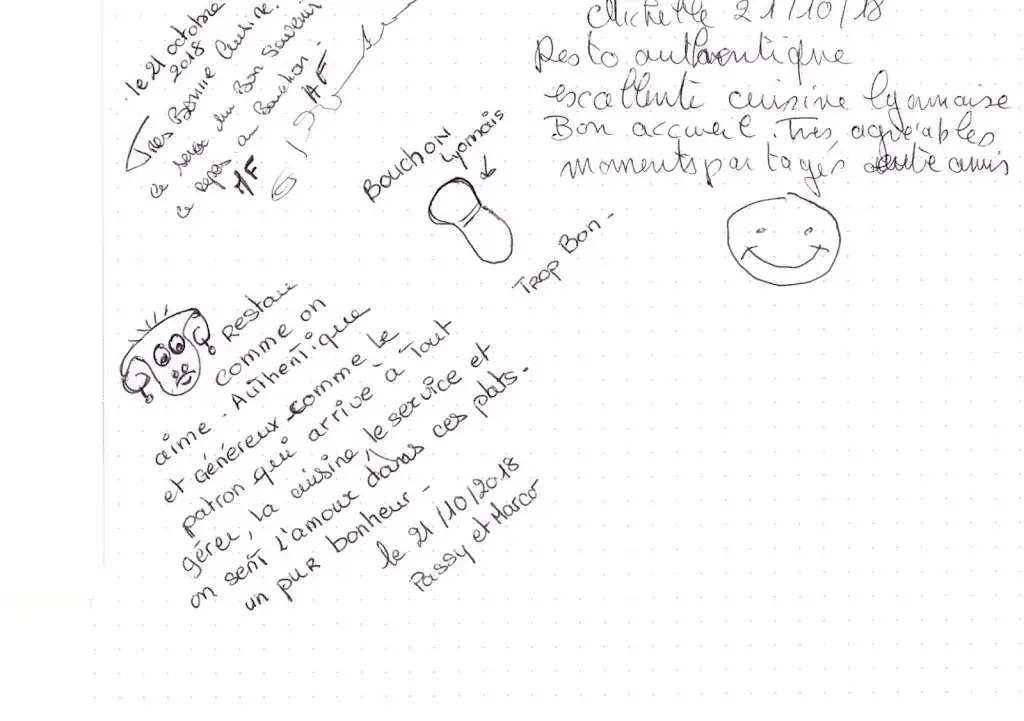 le 21 octobre
2018
Tres Bonne Cuisine.
ce sera du Bon Souvenir
ce repas au Bouchon -
AF
AF
BOUCHON
Lyonnais
TROP BON -
Michelle 21/10/18
Resto authentique
excellente cuisine lyonnaise
Bon accueil. Très agréables
moments partagés entre amis
RESTAU
comme on
aime. Authentique
et Généreux comme le
patron qui arrive à Tout
gérer, la cuisine, le service et
on sent l'amour dans ces plats -
un pur bonheur -
le 21/10/2018
Passy et Marco